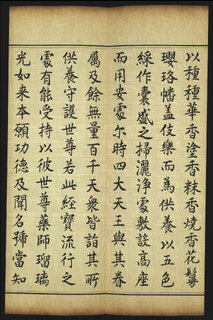 以種種華香塗香粖香燒香花鬘
瓔珞幡蓋伎樂而為供養以五色
綵作囊盛之掃灑淨處敷設高座
而用安處尒時四大天王與其眷
屬及餘無量百千天衆皆詣其所
供養守護世尊若此經寶流行之
處有能受持以彼世尊藥師瑠璃
光如來本願功德及聞名號當知